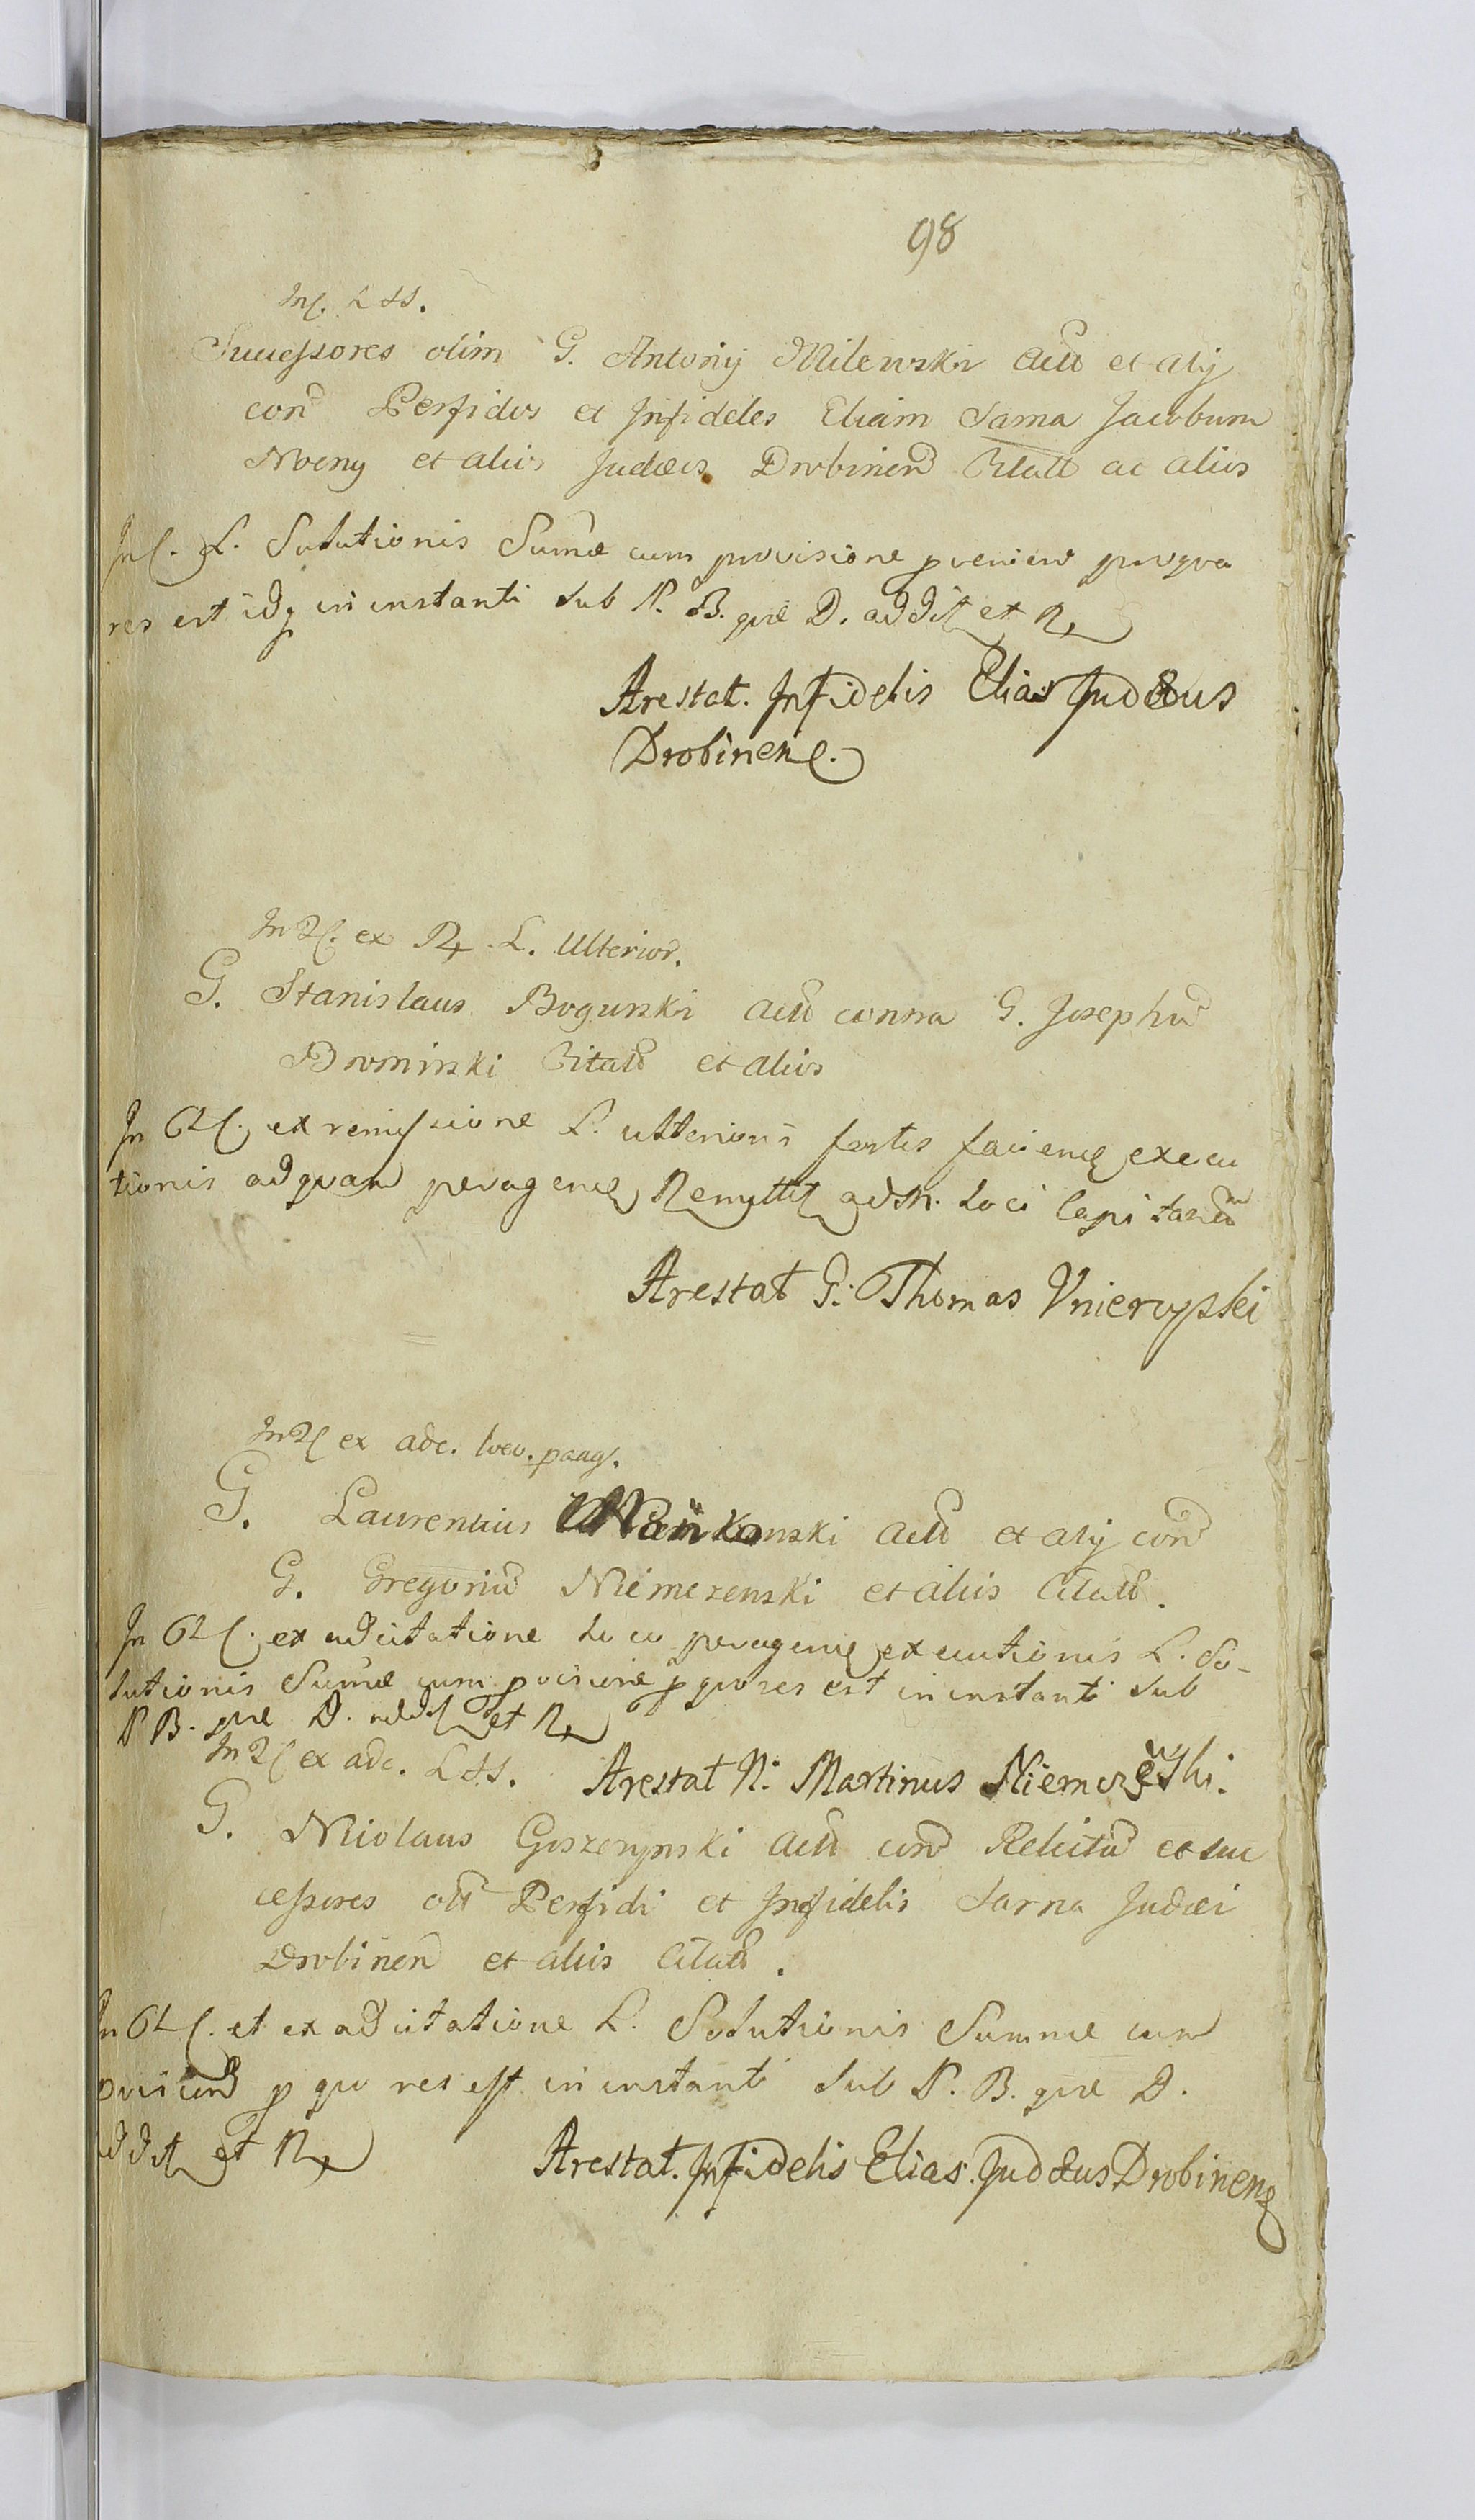 98
In. L. SS.
Successores olim G. Antonij Milewski Actt et alij
con Perfidos et Infideles Eliam Sarna Jacobum
et alios Judæos Drobinen Citatt ac alios
In. L. Solutionis Sumæ cum provisione pvenien proqva
res est idq in instanti sub P. B. qvæ D. addit et R
Arestat. Infidelis Elias Judæus
Drobinen.
In ex R. L. Ulterior.
G. Stanislaus Bogurski Actt contra G. Josephu
Bromirski Citatt et alios
In ex remissione L. ulterioris fortis faciene execu
tionis adqvam peragene Remittit ad M. Loci Capitaneu
Arestat G. Thomas Vnierzyski
In ex adc. loco. paag.
G. Laurentius Actt et alij con
G. Gregoriu Niemerzenski et aliis Citatt.
In ex adcitatione Loco peragene executionis L. So-
lutionis Sumæ cum pvisione p qvo res est in instanti sub
P B. qvæ D. addit et R
In ex adc. L SS. Arestat N. Martinus
G. Nicolaus Goszczynski Actt con Relicta et suc
cessores ott Perfidi et Infidelis Sarna Judæi
Drobinen et aliis Citatt.
In et ex adcitatione L. Solutionis Summæ cum
p qvo res est in instanti sub P. B. qvæ D.
addit et R Arestat. Infidelis Elias Judæus Drobinen